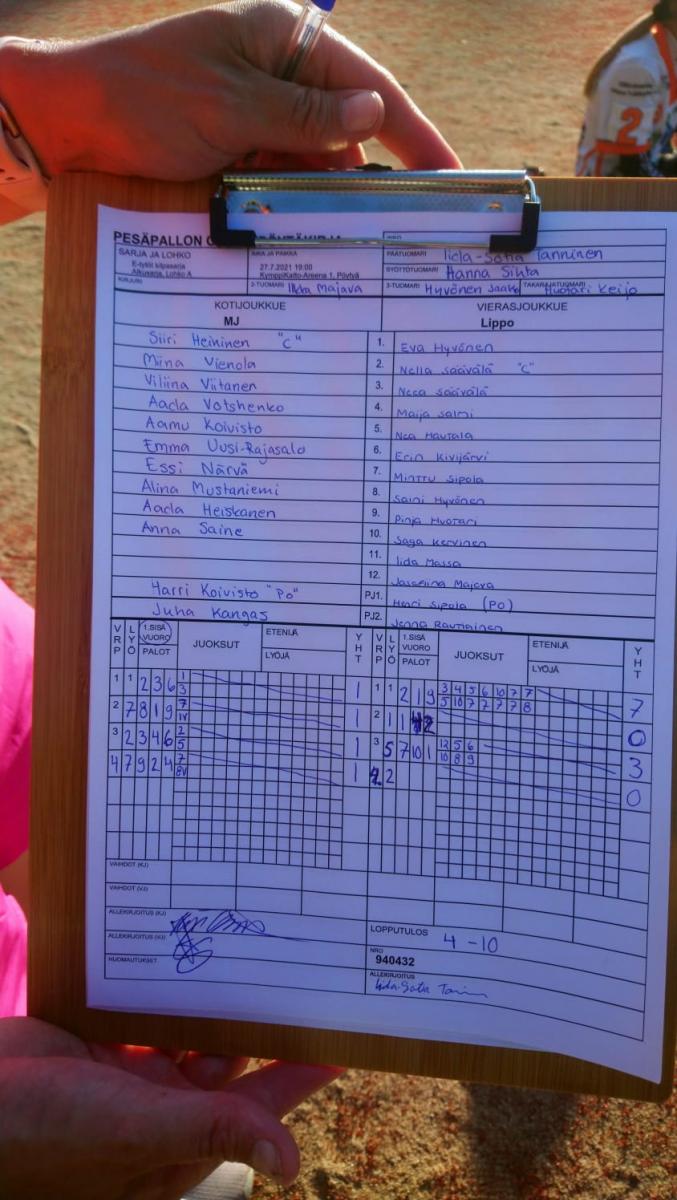 2
PESÄPALLON
SARJA JA LOHKO
E-tytöt kilpasarja
Alkusarja, Lohko A
AIKA JA PAIKKA
27.7.2021 19:00
KymppiKatto-Areena 1, Pöytyä
PÄÄTUOMARI Iida-Sofia Tanninen
SYÖTTÖTUOMARI Hanna Sihta
KIRJURI
2-TUOMARI Ilkka Majava
3-TUOMARI Hyvönen Jaakko TAKARAJATUOMARI Huotari Keijo
KOTIJOUKKUE
MJ
VIERASJOUKKUE
Lippo
Siiri Heininen "C" 1. Eva Hyvönen
Miina Vienola 2. Nella Säävälä "C"
Viliina Viitanen 3. Neea Säävälä
Aada Votshenko 4. Maija Salmi
Aamu Koivisto 5. Nea Hautala
Emma Uusi-Rajasalo 6. Erin Kivijärvi
Essi Närvä 7. Minttu Sipola
Alina Mustaniemi 8. Saini Hyvönen
Aada Heiskanen 9. Pinja Huotari
Anna Saine 10. Saga Kervinen
11. Iida Massa
12. Jasmiina Majava
Harri Koivisto "Po" PJ1. Harri Sipola (PO)
Juha Kangas PJ2. Jenna Rautiainen
VRP LYÖ 1.SISÄ VUORO PALOT JUOKSUT ETENIJÄ LYÖJÄ YHT VRP LYÖ 1.SISÄ VUORO PALOT JUOKSUT ETENIJÄ LYÖJÄ YHT
1 1 2 3 6 1 1 1 1 2 1 9 3 4 5 6 10 7 7 7
3 5 10 7 7 7 7 8
2 7 8 1 9 7 1 2 1 1 0
IV
3 2 3 4 6 2 1 3 5 7 10 1 12 5 6 3
5 10 8 9
4 7 9 2 4 7 1 2 0
8V
VAIHDOT (KJ)
VAIHDOT (VJ)
ALLEKIRJOITUS (KJ)
LOPPUTULOS 4 - 10
ALLEKIRJOITUS (VJ)
NRO
940432
HUOMAUTUKSET
ALLEKIRJOITUS